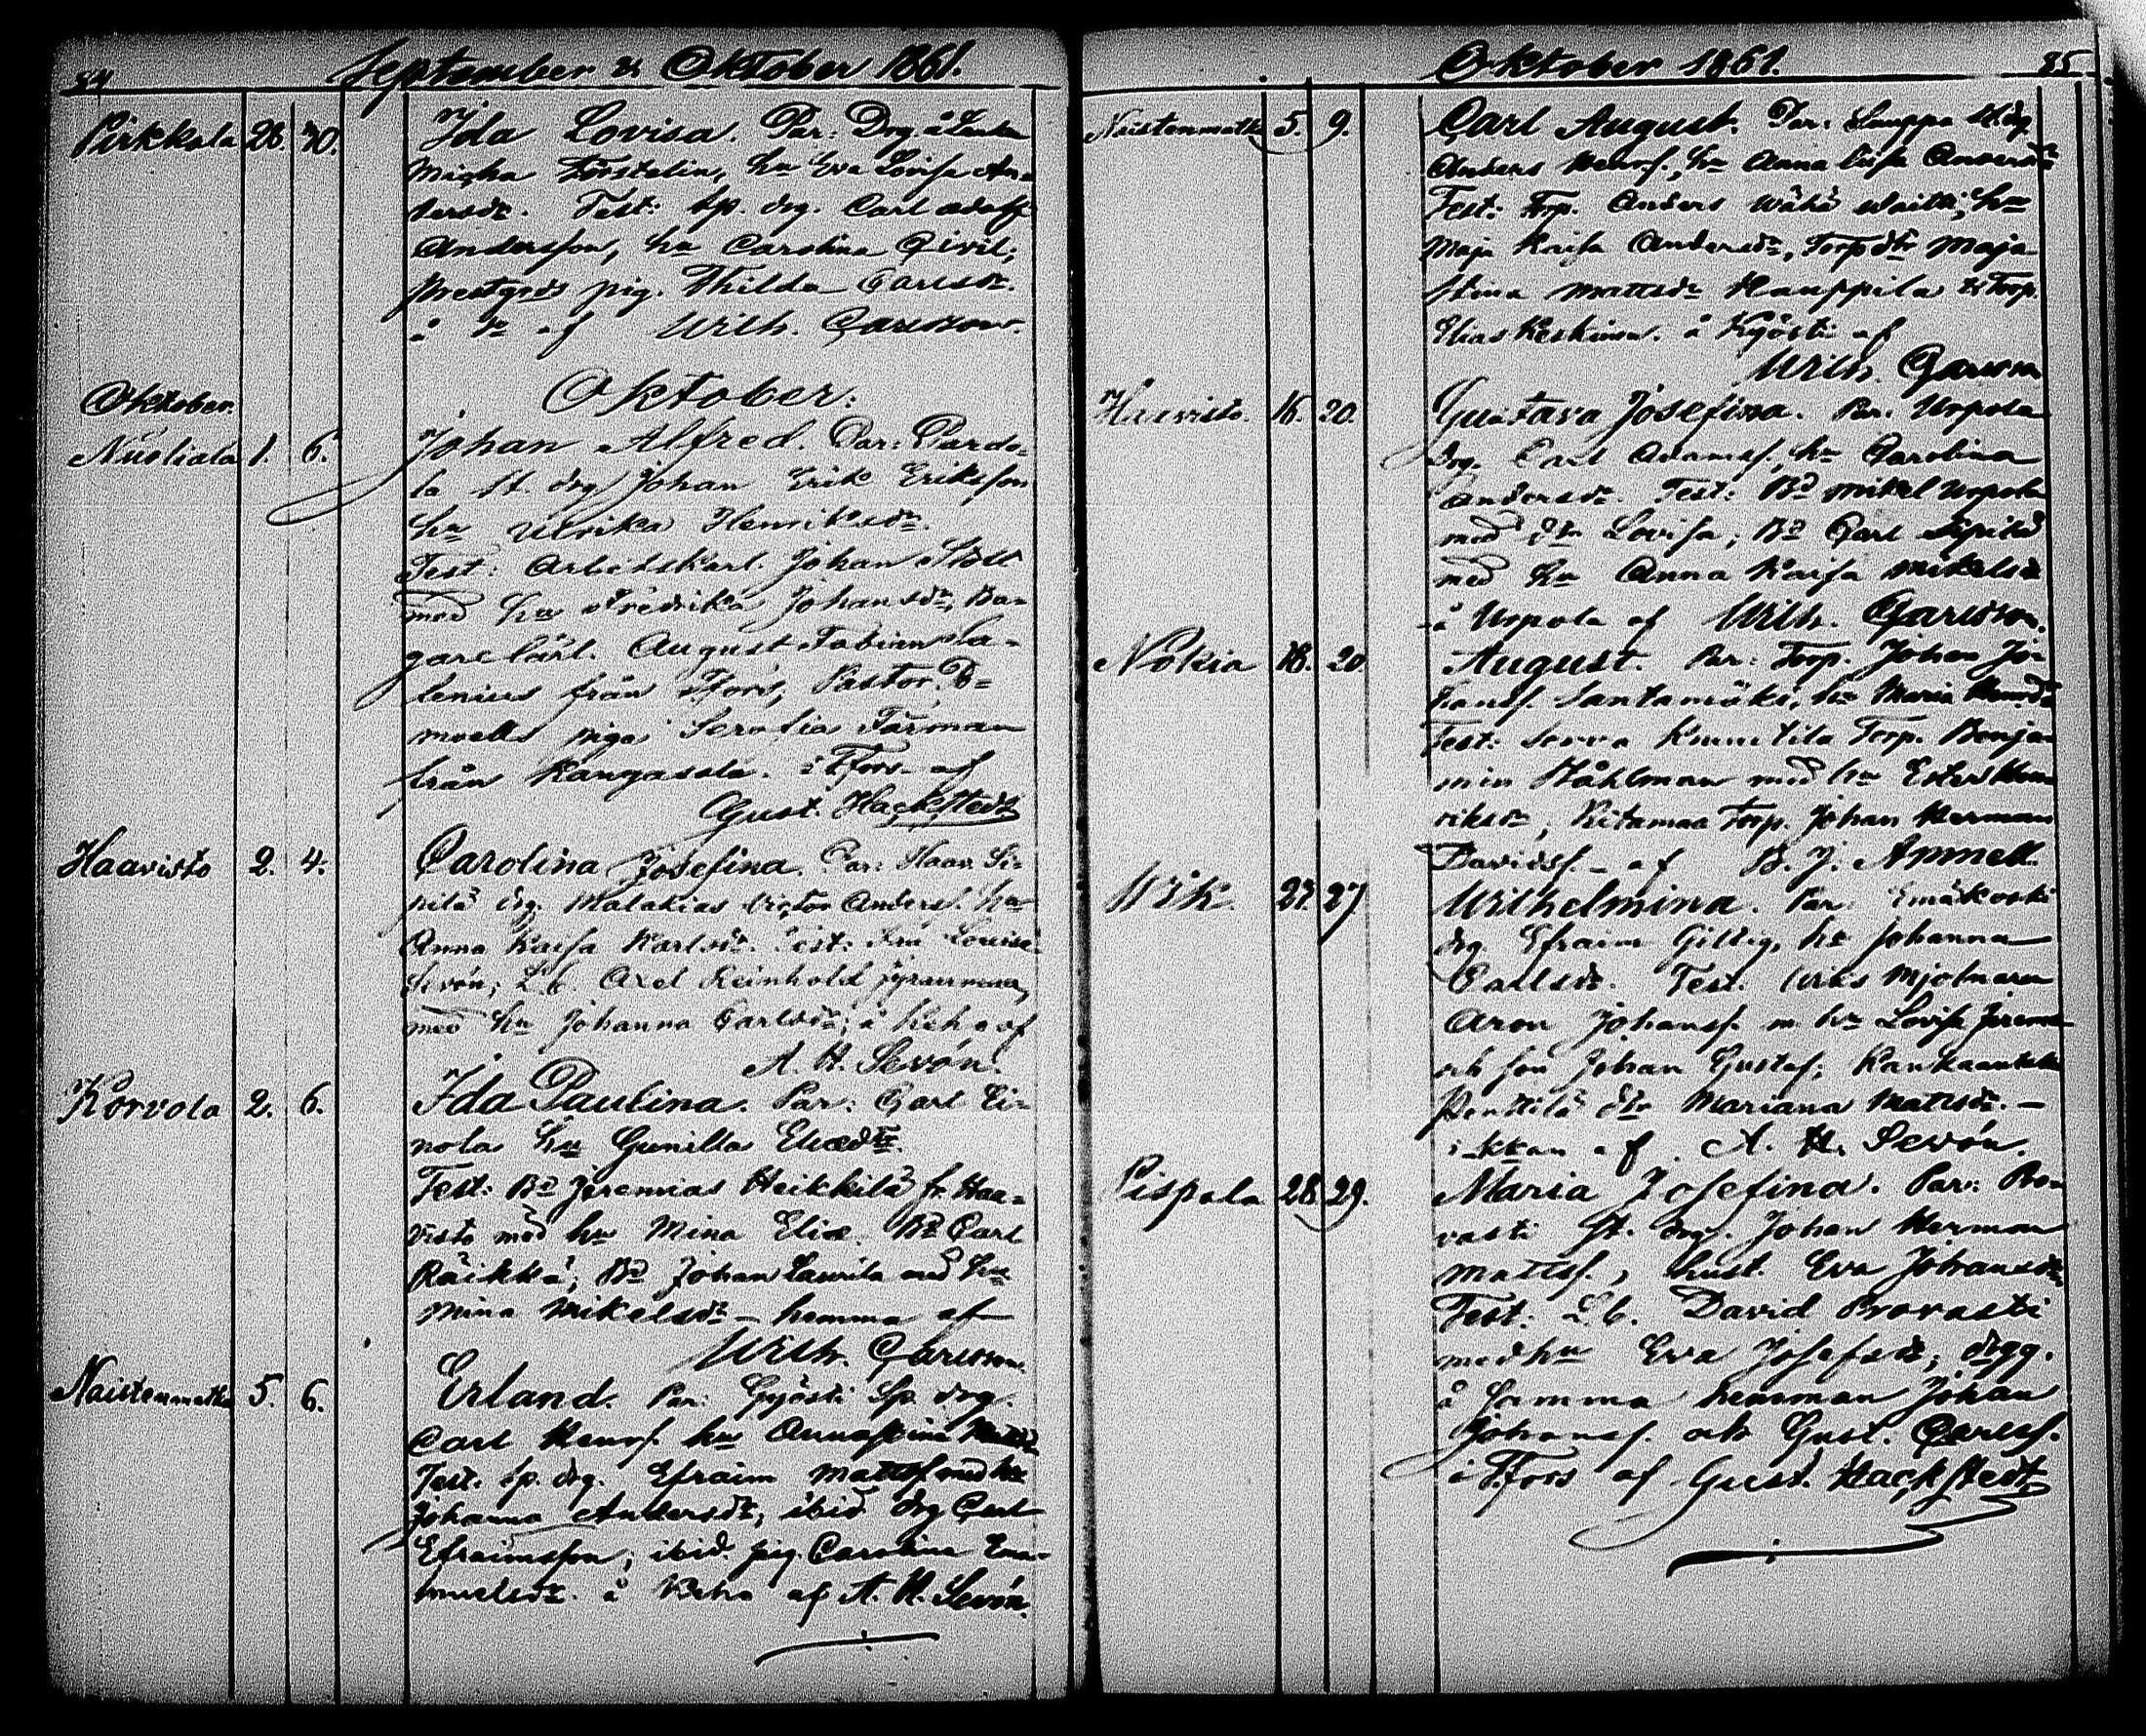 84 September & Oktober 1861.
Pirkkala 28. 30. Ida Lovisa. Par: Drg å
Andersson, hu Carolina
pig. Thilda Carlsdr.
å do af Wilh. Carlsson.
Oktober. Oktober:
1. 6. Johan Alfred. Par: Pardo-
la St. drg. Johan Erik Eriksson
hu Ulrika Henriksdr.
Test: Arbetskarl. Johan
med hu Fredrika Johansdr, Ba-
garelärl. August Fabian Sa-
lenius från Tfors, Pastor
piga Serafia Färman
från Kangasala. i Tfors af
Gust. Hackstedt
Haavisto 2. 4. Carolina Josefina. Par: Haav. Si-
pilä drg. Malakias Victor Anders. hu
Anna Kaisa Karlsdr. Test: Louise
Sevón; L.b. Axel Reinhold
med hu Johanna Carlsdr; å Keho af
A. H. Sevón.
Korvola 2. 6. Ida Paulina. Par: Carl Ei-
nola hu Gunilla
Test: Bd Jeremias Heikkilä fr. Haa-
visto med hu Mina Eliæ. Bd Carl
Räikkä; Bd Johan Laurila med hu
Mina Mikelsdr – hemma af
Wilh. Carlsson.
Naistenmatka 5. 6. Erland. Par: Gyösti Sp. drg.
Carl Henrs. hu Annastina
Test. Sp. drg. Efraim Matts. med hu
Johanna Andersdr; ibid drg Carl
Efraimsson; ibid. pig. Carolina Ema-
nuelsdr. å Keho af A. H. Sevón.
Oktober 1861. 85
Naistenmatka 5. 9. Carl August. Par: Lauppa St. dg
Anders Henrs., hu Anna Lisa Andersdr
Test: Torp. Anders Wähä hu
Maja Kaisa Andersdr, Torpdtr Maja
Stina Mattsdr Kauppila & Torp.
Elias Keskinen. å Kyösti af
Wilh. Carlsson
Haavisto. 16. 20. Gustava Josefina. Par. Urpola
drg. Carl Adams., hu Carolina
Andersdr. Test: Bd Mikel Urpola
med dtr Lovisa; Bd Carl Sipilä
med hu Anna Kaisa Mikelsdr
å Urpola af Wilh. Carlsson.
Nokia 18. 20 August. Par: Torp. Johan Jo-
hans. Santamäki, hu Maria
Test: Torp. Benja-
min Ståhlman med hu Ester Hen-
riksdr; Ritamaa Torp. Johan Herman
Davids. – af B. J. Apmell.
Wik. 23. 27. Wilhelmina. Par: Emäkoski
drg. Efraim Gillig, hu Johanna
Carlsdr. Test. Wiks Mjölnaren
Aron Johans. m. hu Lovisa
och son Johan Gustaf; Rankaantaka
Penttilä dtr Mariana Mattsdr. –
i kkan af A. H. Sevón.
Pispala 28. 29. Maria Josefina. Par: Pro-
vasti St. drg. Johan Herman
Matts., hust. Eva Johansdr
Test: L.b. David Provasti
med hu Eva Josefsdr; drgg.
å samma hemman Johan
Johans. och Gust. Carls.
i Tfors af Gust. Hackstedt